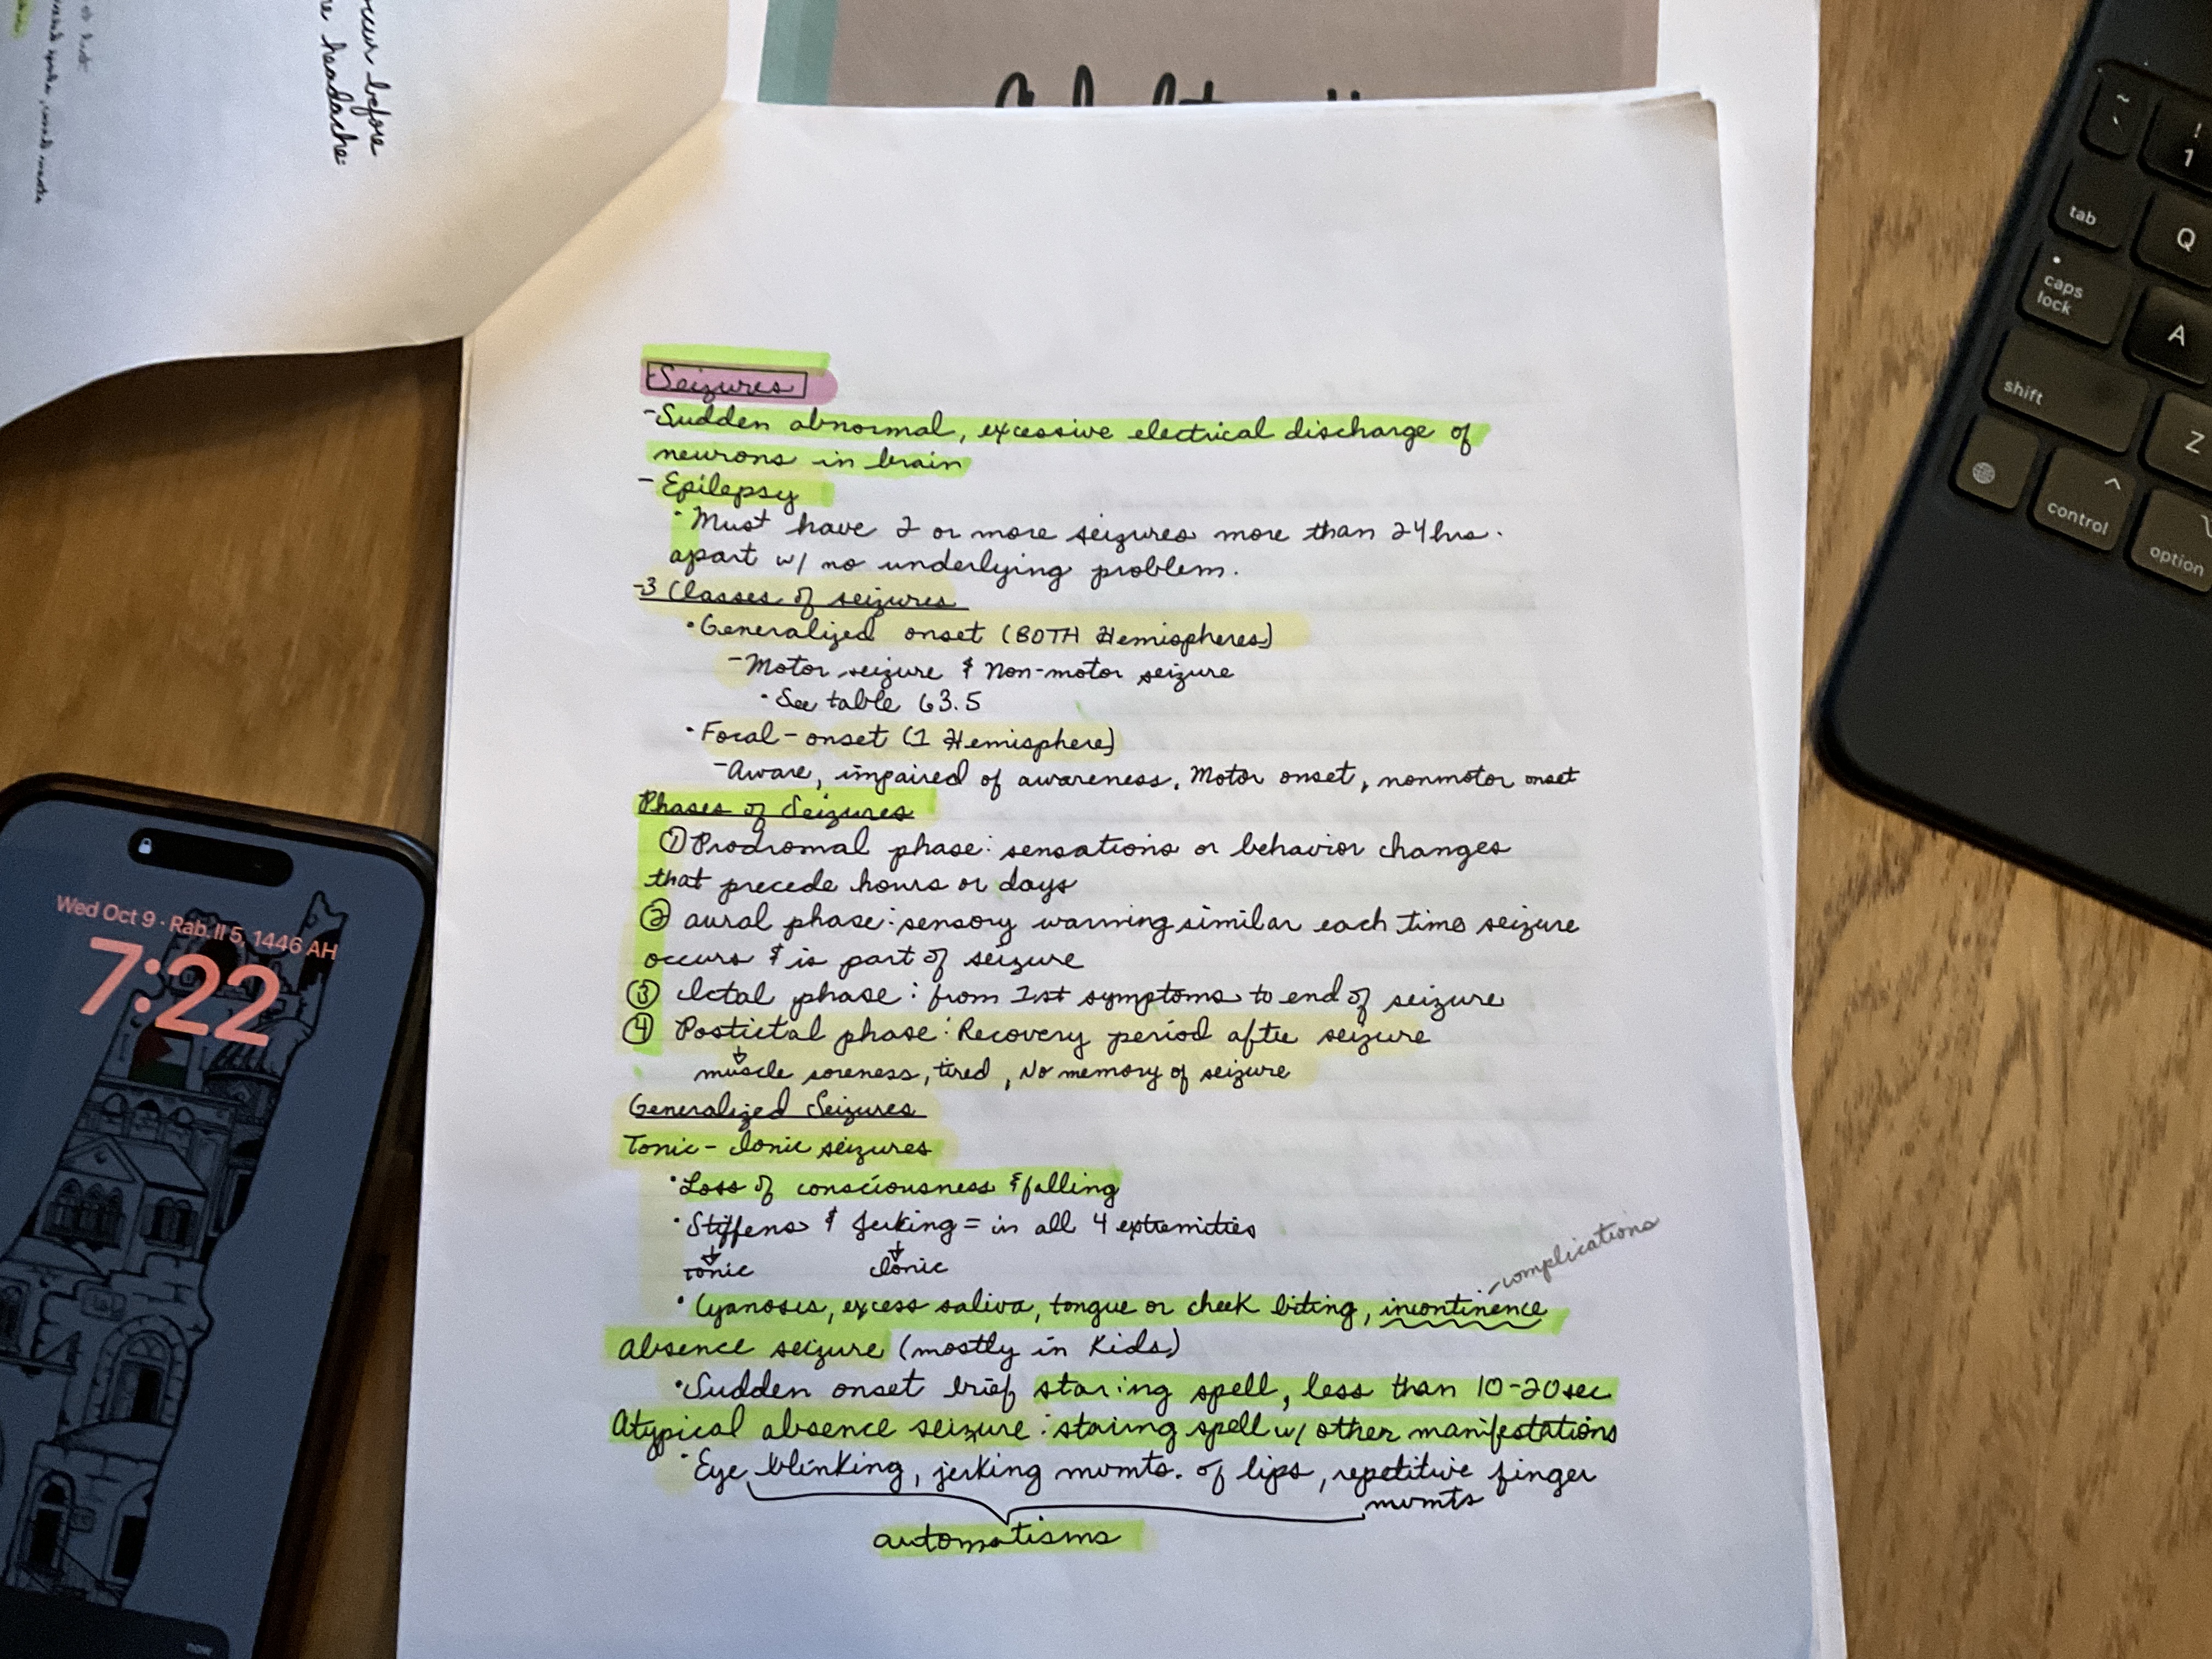 occur before
headache:
Seizures
-Sudden abnormal, excessive electrical discharge of
neurons in brain
- Epilepsy
• Must have 2 or more seizures more than 24hrs.
apart w/ no underlying problem.
-3 Classes of seizures
• Generalized onset (BOTH Hemispheres)
- Motor seizure & Non-motor seizure
• See table 63.5
• Focal-onset (1 Hemisphere)
- Aware, impaired of awareness, Motor onset, nonmotor onset
Phases of Seizures
① Prodromal phase: sensations or behavior changes
that precede hours or days
② aural phase: sensory warning similar each time seizure
occurs & is part of seizure
③ Ictal phase: from 1st symptoms to end of seizure
④ Postictal phase: Recovery period after seizure
muscle soreness, tired, No memory of seizure
Generalized Seizures
Tonic-clonic seizures
• Loss of consciousness & falling
• Stiffens & Jerking = in all 4 extremities
tonic clonic
-complications
• Cyanosis, excess saliva, tongue or cheek biting, incontinence
Absence seizure (mostly in Kids)
• Sudden onset brief staring spell, less than 10-20sec
Atypical absence seizure: staring spell w/ other manifestations
• Eye blinking, jerking mvmts. of lips, repetitive finger
mvmts
automatisms
Wed Oct 9 · Rab. II 5, 1446 AH
7:22
now
~
`
!
1
tab
Q
caps
lock
A
shift
Z
^
control
option